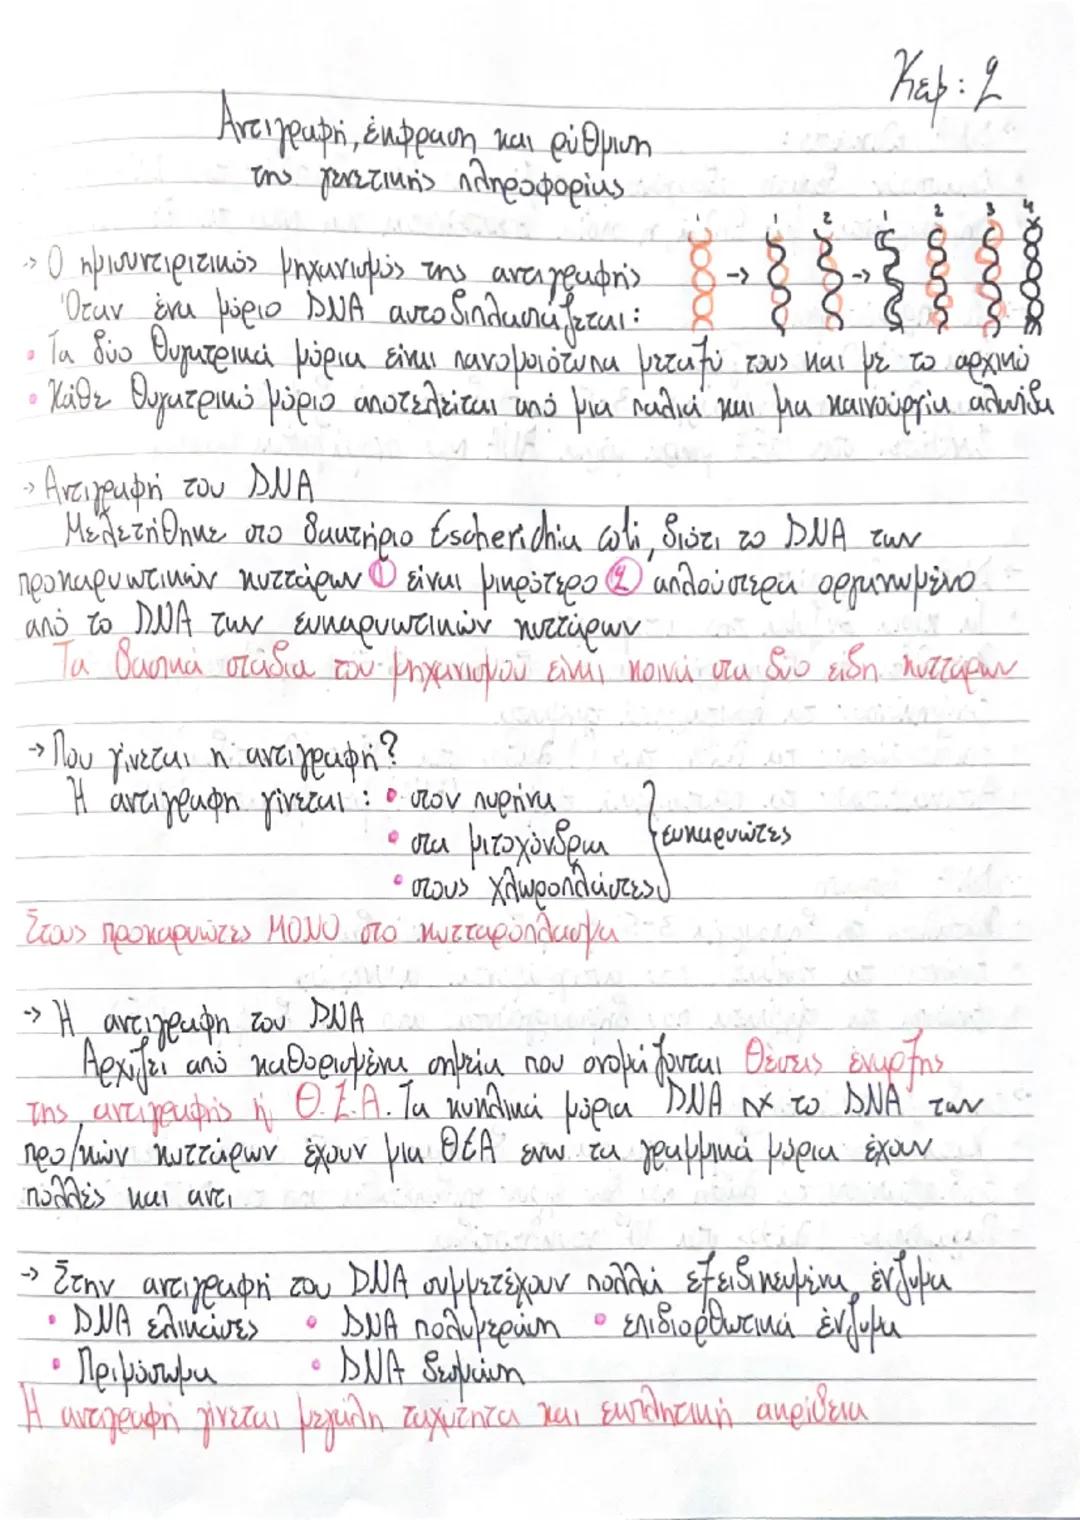 Κεφ: 2
Αντιγραφή, έκφραση και ρύθμιση
της γενετικής πληροφορίας
1 1 2 1 2 3 4
→ Ο ημισυντηρητικός μηχανισμός της αντιγραφής
Όταν ένα μόριο DNA αυτοδιπλασιάζεται:
• Τα δύο θυγατρικά μόρια είναι πανομοιότυπα μεταξύ τους και με το αρχικό
• Κάθε θυγατρικό μόριο αποτελείται από μια παλιά και μια καινούργια αλυσίδα
→ Αντιγραφή του DNA
Μελετήθηκε στο βακτήριο Escherichia coli, διότι το DNA των
προκαρυωτικών κυττάρων ① είναι μικρότερο ② απλούστερα οργανωμένο
από το DNA των ευκαρυωτικών κυττάρων
Τα βασικά στάδια του μηχανισμού είναι κοινά στα δύο είδη κυττάρων
→ Που γίνεται η αντιγραφή?
Η αντιγραφή γίνεται: • στον πυρήνα
• στα μιτοχόνδρια } ευκαρυώτες
• στους χλωροπλάστες
Στους προκαρυώτες ΜΟΝΟ στο κυτταρόπλασμα
→ Η αντιγραφη του DNA
Αρχίζει από καθορισμένα σημεία που ονομάζονται Θέσεις έναρξης
της αντιγραφής ή Θ.Ε.Α. Τα κυκλικά μόρια DNA πχ το DNA των
προ/κών κυττάρων έχουν μια ΘΕΑ ενω τα γραμμικά μόρια έχουν
πολλές και αντι
→ Στην αντιγραφή του DNA συμμετέχουν πολλά εξειδικευμένα ένζυμα
• DNA ελικάσες • DNA πολυμεράση • επιδιορθωτικά ένζυμα
• Πριμόσωμα • DNA δεσμάση
Η αντιγραφή γίνεται μεγάλη ταχύτητα και εκπληκτική ακρίβεια